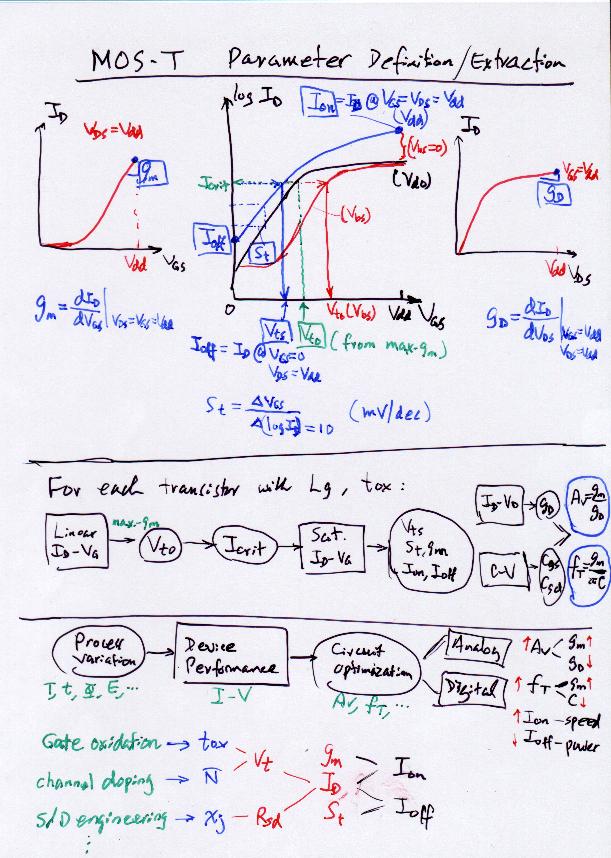 MOS-T Parameter Definition/Extraction
I_D
V_DS=V_dd
g_m
V_dd
V_GS
g_m = dI_D/dV_GS | V_DS=V_GS=V_dd
log I_D
I_on = I_D @ V_GS=V_DS=V_dd
(V_dd)
(V_bs=0)
I_crit
(V_do)
I_off
S_t
(V_bs)
0
V_to(V_bs)
V_dd
V_GS
V_ts
V_to (from max-g_m)
I_off = I_D @ V_GS=0
V_DS=V_dd
S_t = ΔV_GS/Δ(log I_D)=10 (mV/dec)
I_D
V_GS=V_dd
g_D
V_dd
V_DS
g_D = dI_D/dV_DS | V_GS=V_dd
V_DS=V_dd
For each transistor with Lg, tox:
Linear
I_D-V_G
max-g_m
V_to
I_crit
Sat.
I_D-V_G
V_ts
S_t, g_m
I_on, I_off
I_D-V_D
g_D
A_v=g_m/g_D
C-V
C_gs
C_sd
f_T=g_m/πC
Process
Variation
T, t, Φ, E, ...
Device
Performance
I-V
Circuit
optimization
A_v, f_T, ...
Analog
↑A_v
g_m↑
g_D↓
Digital
↑f_T
g_m↑
C↓
↑I_on-speed
↓I_off-power
Gate oxidation → tox
V_t
channel doping → N
S/D engineering → x_j
R_sd
g_m
I_D
S_t
I_on
I_off